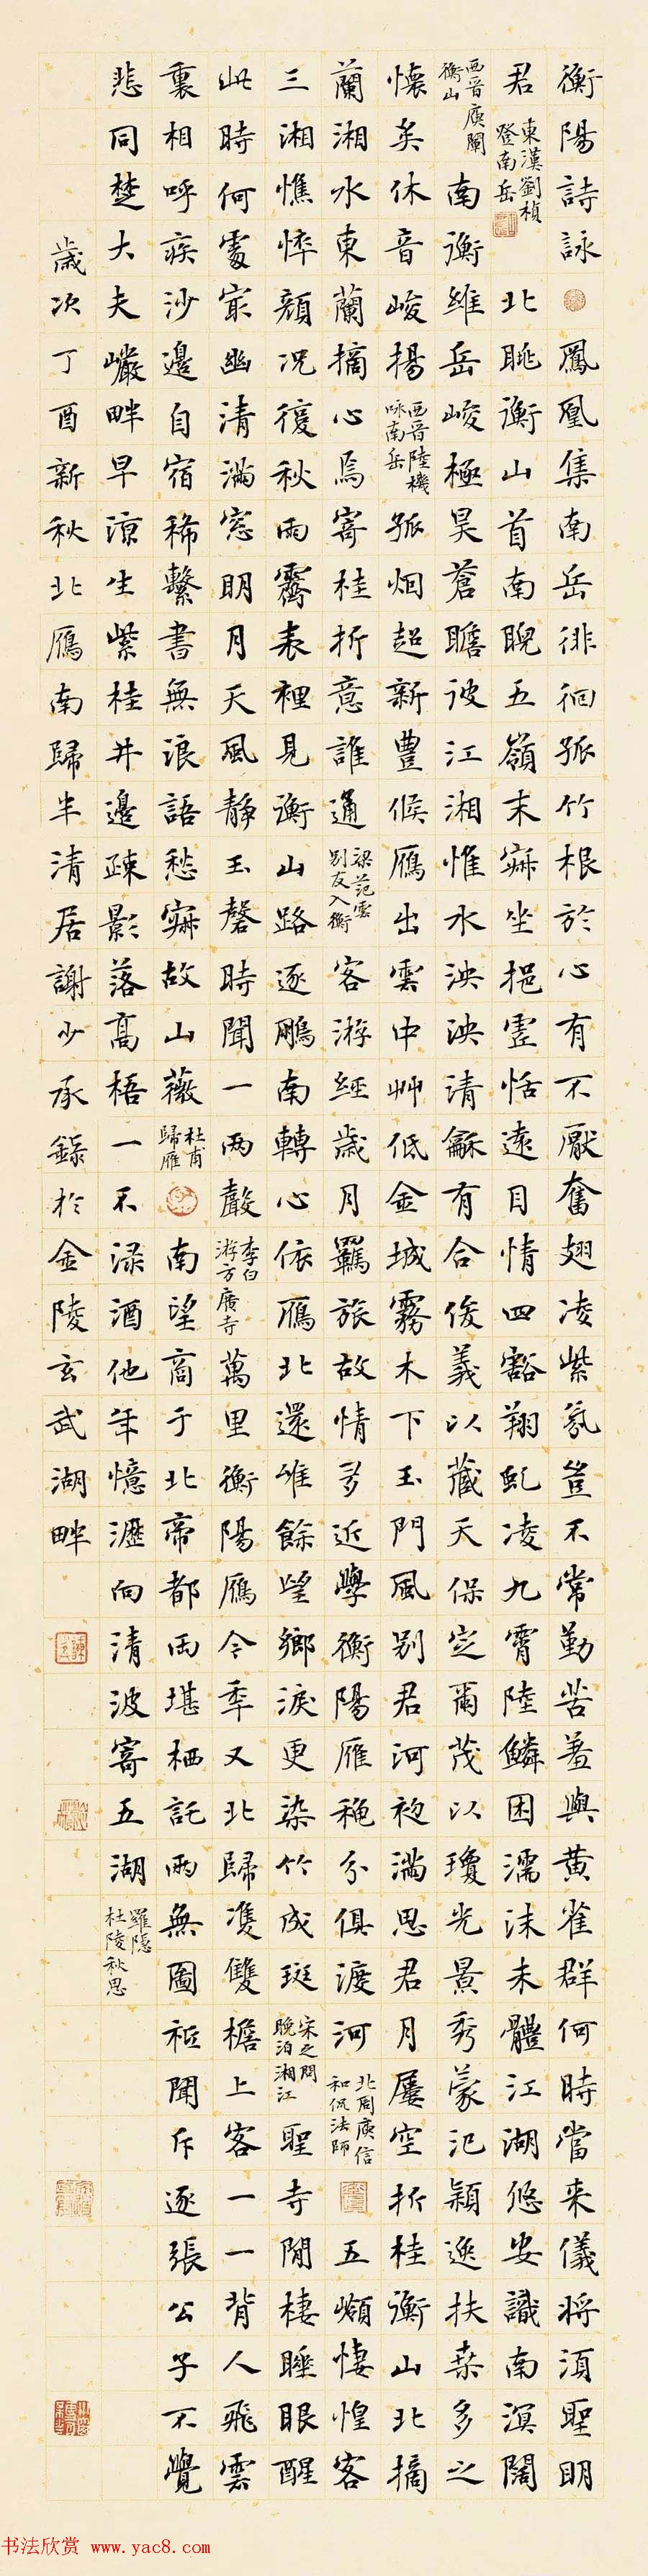 衡陽詩詠 鳳凰集南岳徘徊孤竹根於心有不厭奮翅凌紫氛豈不常勤苦羞與黃雀群何時當來儀將須聖明
君 東漢劉楨登南岳 北眺衡山首南睨五嶺末寂坐挹虛恬遠目情四豁翔虬凌九霄陸鱗困濡沫未體江湖悠安識南溟闊
西晉庾闡衡山 南衡維岳峻極昊蒼瞻彼江湘惟水泱泱清龢有合俊義以藏天保定爾茂以瓊光景秀蒙汜穎逸扶桑多之
懷矣休音峻揚 西晉陸機咏南岳 孤烟起新豐候雁出雲中艸低金城霧木下玉門風別君河初滿思君月屢空折桂衡山北摘
蘭湘水東蘭摘心焉寄桂折意誰通 梁范雲别友入衡 客游經歲月羈旅故情多近學衡陽雁秋分俱渡河 北周庾信和侃法師 五嶺悽惶客
三湘憔悴顏況復秋雨霽表裡見衡山路逐鵬南轉心依雁北還唯餘望鄉淚更染竹成斑 宋之問晚泊湘江 聖寺閒棲睡眼醒
此時何處最幽清滿窗明月天風靜玉磬時聞一兩聲 李白游方廣寺 萬里衡陽雁今年又北歸雙雙瞻上客一一背人飛雲
裏相呼疾沙邊自宿稀繫書無浪語愁寂故山薇 杜甫歸雁 南望商于北帝都兩堪栖託兩無圖祗聞斥逐張公子不覺
悲同楚大夫巖畔早涼生紫桂井邊疎影落高梧一不淥酒他年憶瀝向清波寄五湖 羅隱杜陵秋思
歲次丁酉新秋北雁南歸半清居謝少承錄於金陵玄武湖畔
书法欣赏 www.yac8.com